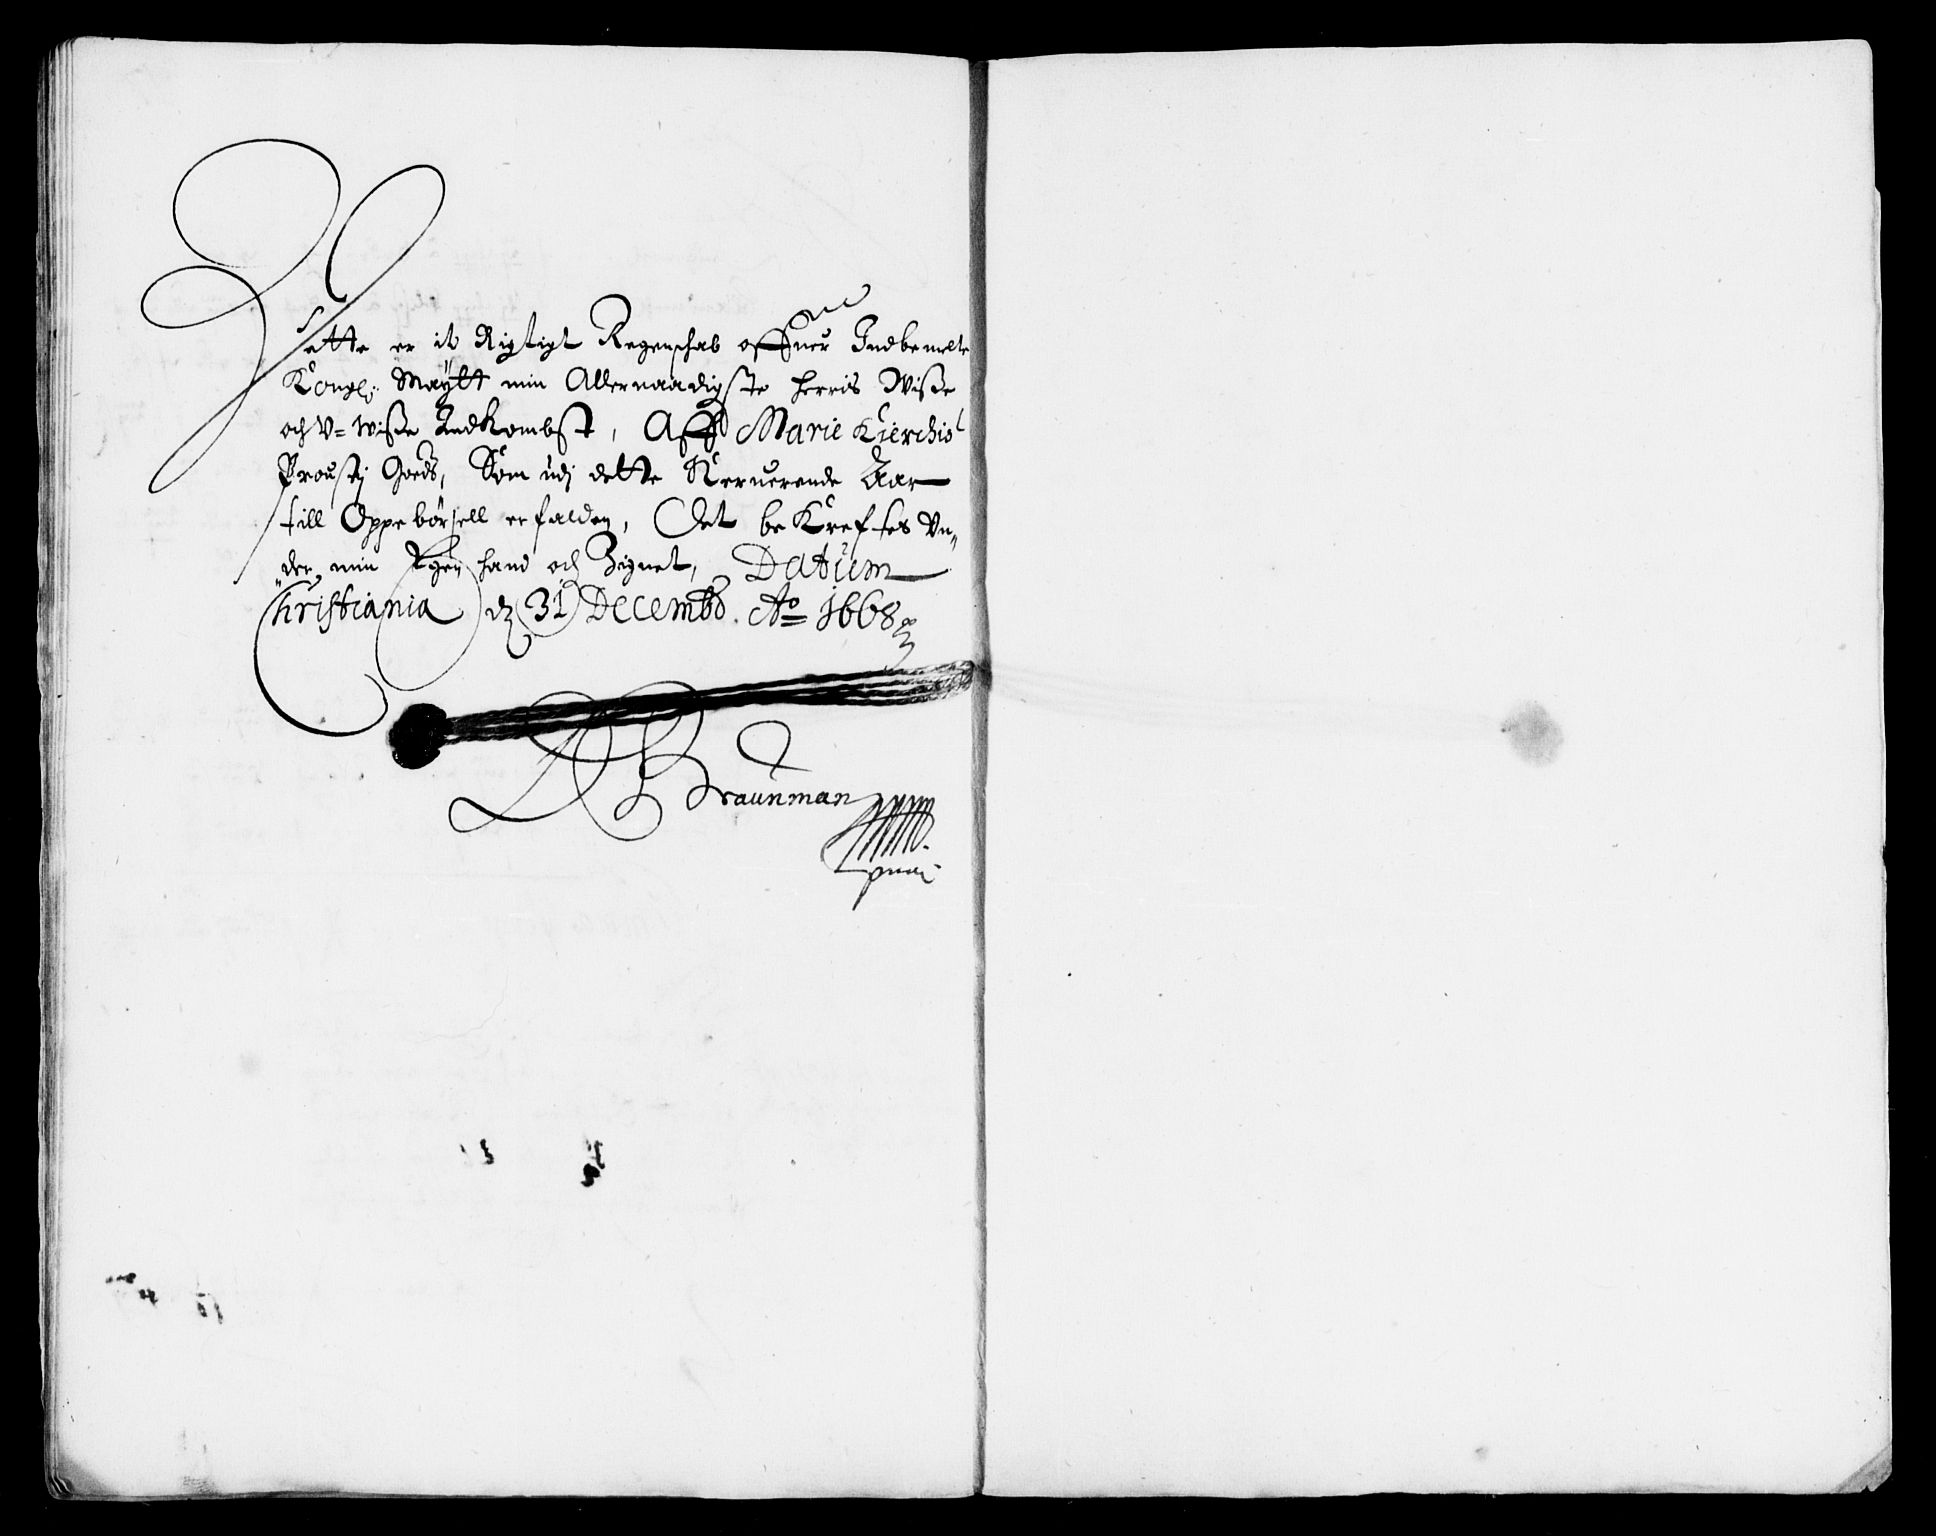 Dette er it Rigtigt Regenschab offuer Indbemelte
Kongl: Maÿtt min Allernaadigste herris Wiße
och V= wiße Indkombst, Aff Marie Kierchis
Proustj Goeds, Som udj dette Neruerende Aar
till Oppebörsell erfalden, Det bekrefftes Vn„
„der min Egen hand och Zignet, Datum
Christiania dz 31 Decembr. Ao 1668
Braunman